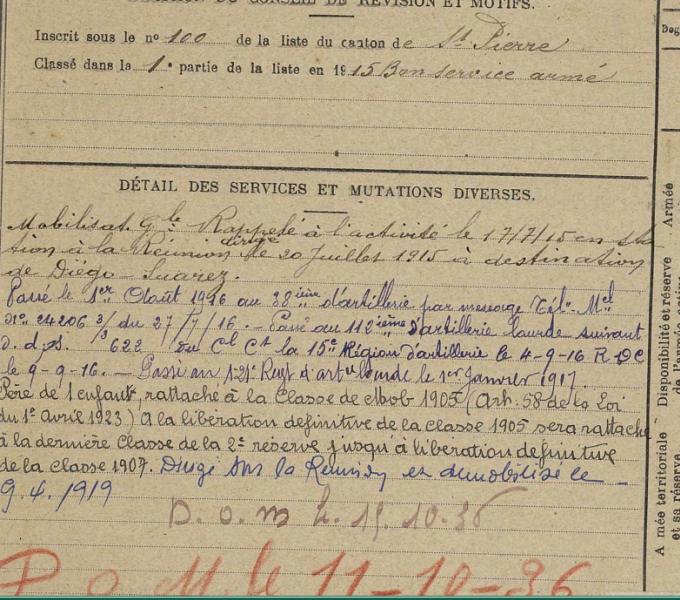 DÉCISION DU CONSEIL DE RÉVISION ET MOTIFS.
Inscrit sous le nº 100 de la liste du canton de St Pierre
Classé dans la 1e partie de la liste en 1915 Bon service armé
DÉTAIL DES SERVICES ET MUTATIONS DIVERSES.
Mobilisat. Gle Rappelé à l'activité le 17/7/15 en sta
tion à la Réunion dirigé le 20 Juillet 1915 à destination
de Diégo-Suarez.
Passé le 1er Août 1916 au 38ième d'artillerie par message Tél. Mel
Nº 24206 3/3 du 27/7/16. - Passé au 112ième d'artillerie lourde suivant
622 du Cl Ct la 15e Région d'artillerie le 4-9-16 R DC
le 9-9-16. - Passé au 121e Regt d'artie lourde le 1er Janvier 1917.
Père de 1 enfant, rattaché à la Classe de mob 1905 (Art. 58 de la Loi
du 1e Avril 1923) A la libération définitive de la classe 1905 sera rattaché
à la dernière Classe de la 2e réserve jusqu'à libération definitive
de la classe 1907. Dirigé sur la Réunion et démobilisé le
9.4.1919
D. O. M l. 15.10.36
P O M. le 11-10-36
Disponibilité et réserve
de l'armée active
Armée
A mée territoriale
et sa réserve
Deg